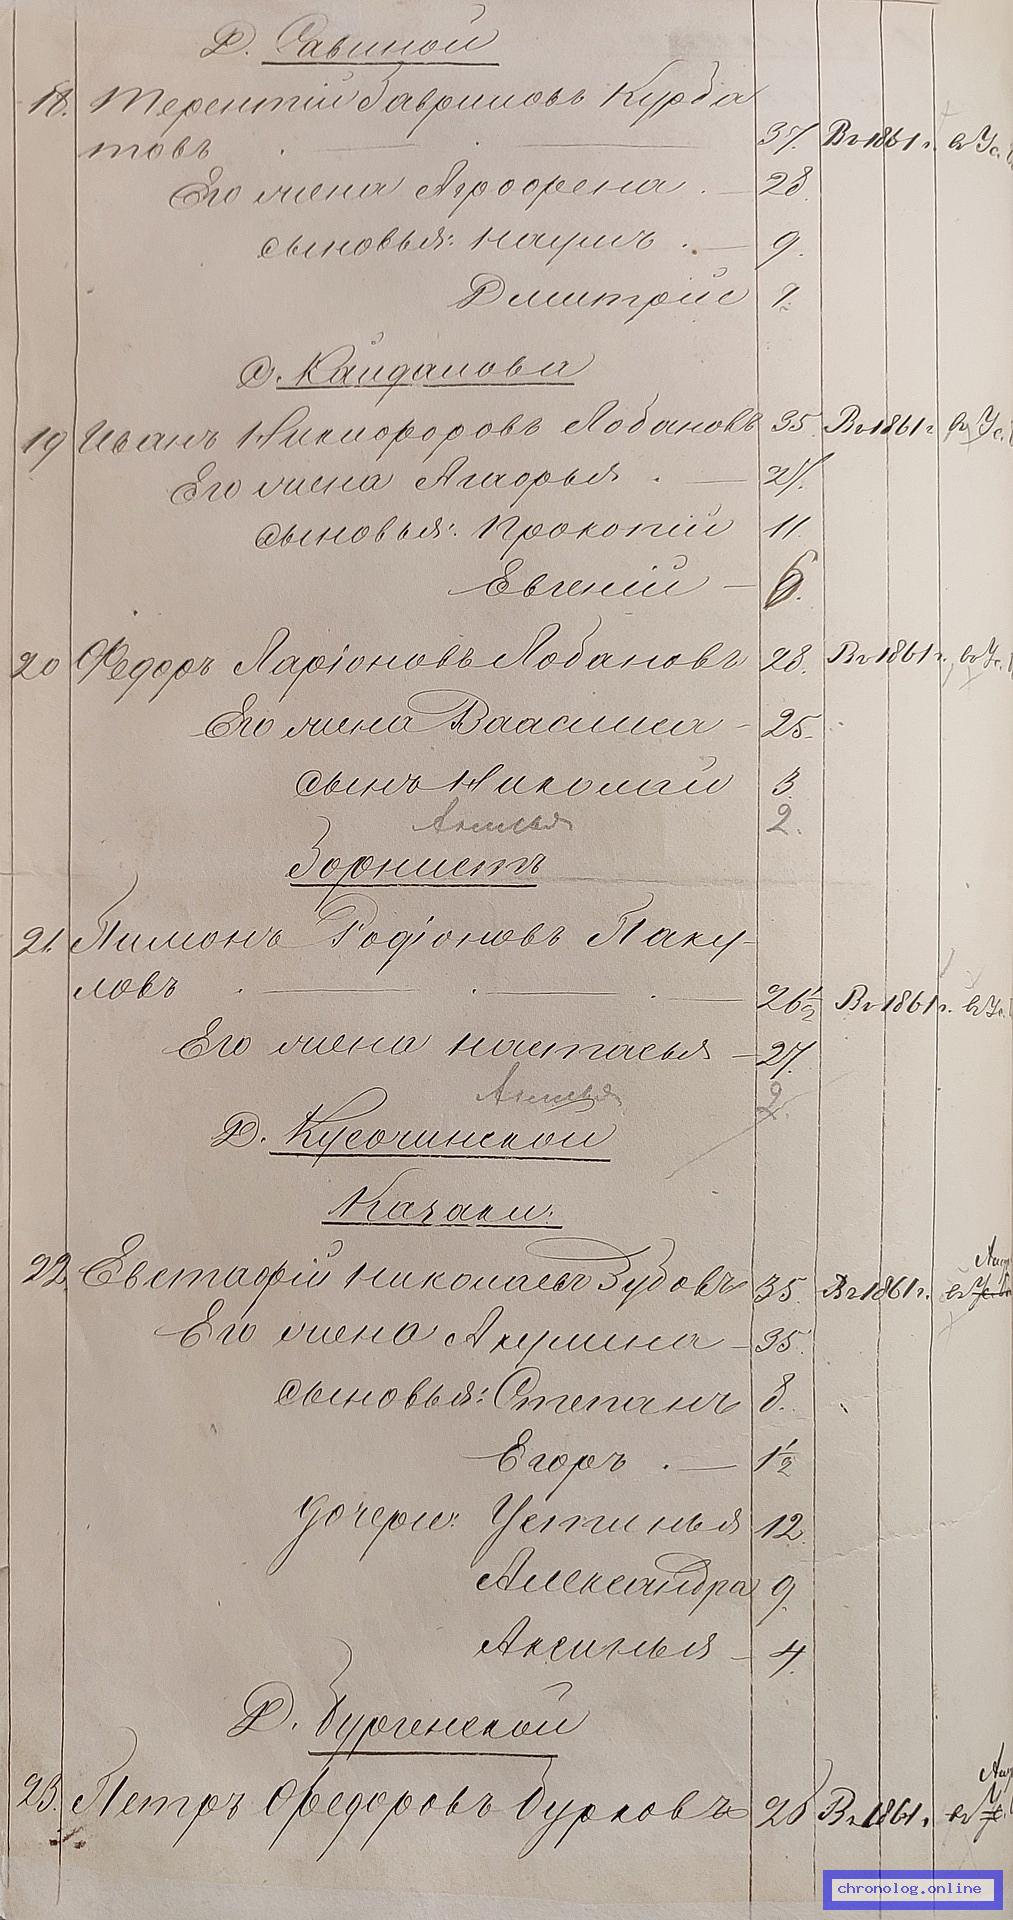 Д. Савиной
18. Терентій Гавриловъ Курба
товъ 37. Въ 1861 г. въ Ус.
Его жена Агрофена . — 28.
сыновья: Наумъ . — 9.
Дмитрій 7.
С. Кайдалова
19 Иванъ Никифоровъ Лобановъ 35 Въ 1861 г въ Ус.
Его жена Агафья . —
сыновья: Прокопій 11.
Евгеній — 6.
20 Федоръ Ларіоновъ Лобановъ 28. Въ 1861 г. въ Ус.
Его жена Василиса — 25.
сынъ Николай 3.
2.
Горнистъ
21. Пимонъ Родіоновъ Паку-
ловъ 26½ Въ 1861 г. въ Ус.
Его жена Настасья — 27.
2.
Д. Кусочинской
Казаки:
22. Евстафій Николаевъ Зубовъ 35. Въ 1861 г. въ
Его жена Акулина — 35.
сыновья: Степанъ 8.
Егоръ . — 1½
дочери: Устинья 12.
Александра 9.
Аксинья — 4.
Д. Бургенской
23. Петръ Федоровъ Бурковъ 26 Въ 1861 г. въ
chronolog.online